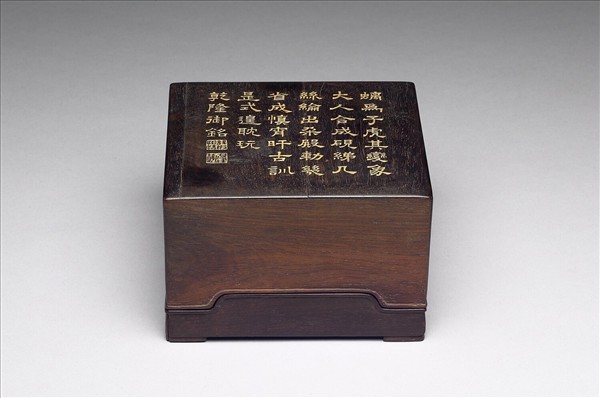 螭為子虎其變象
大人合成硯綈几
絲綸出紫殿勑幾
省成慎宵旰古訓
是式遑耽玩
乾隆御銘